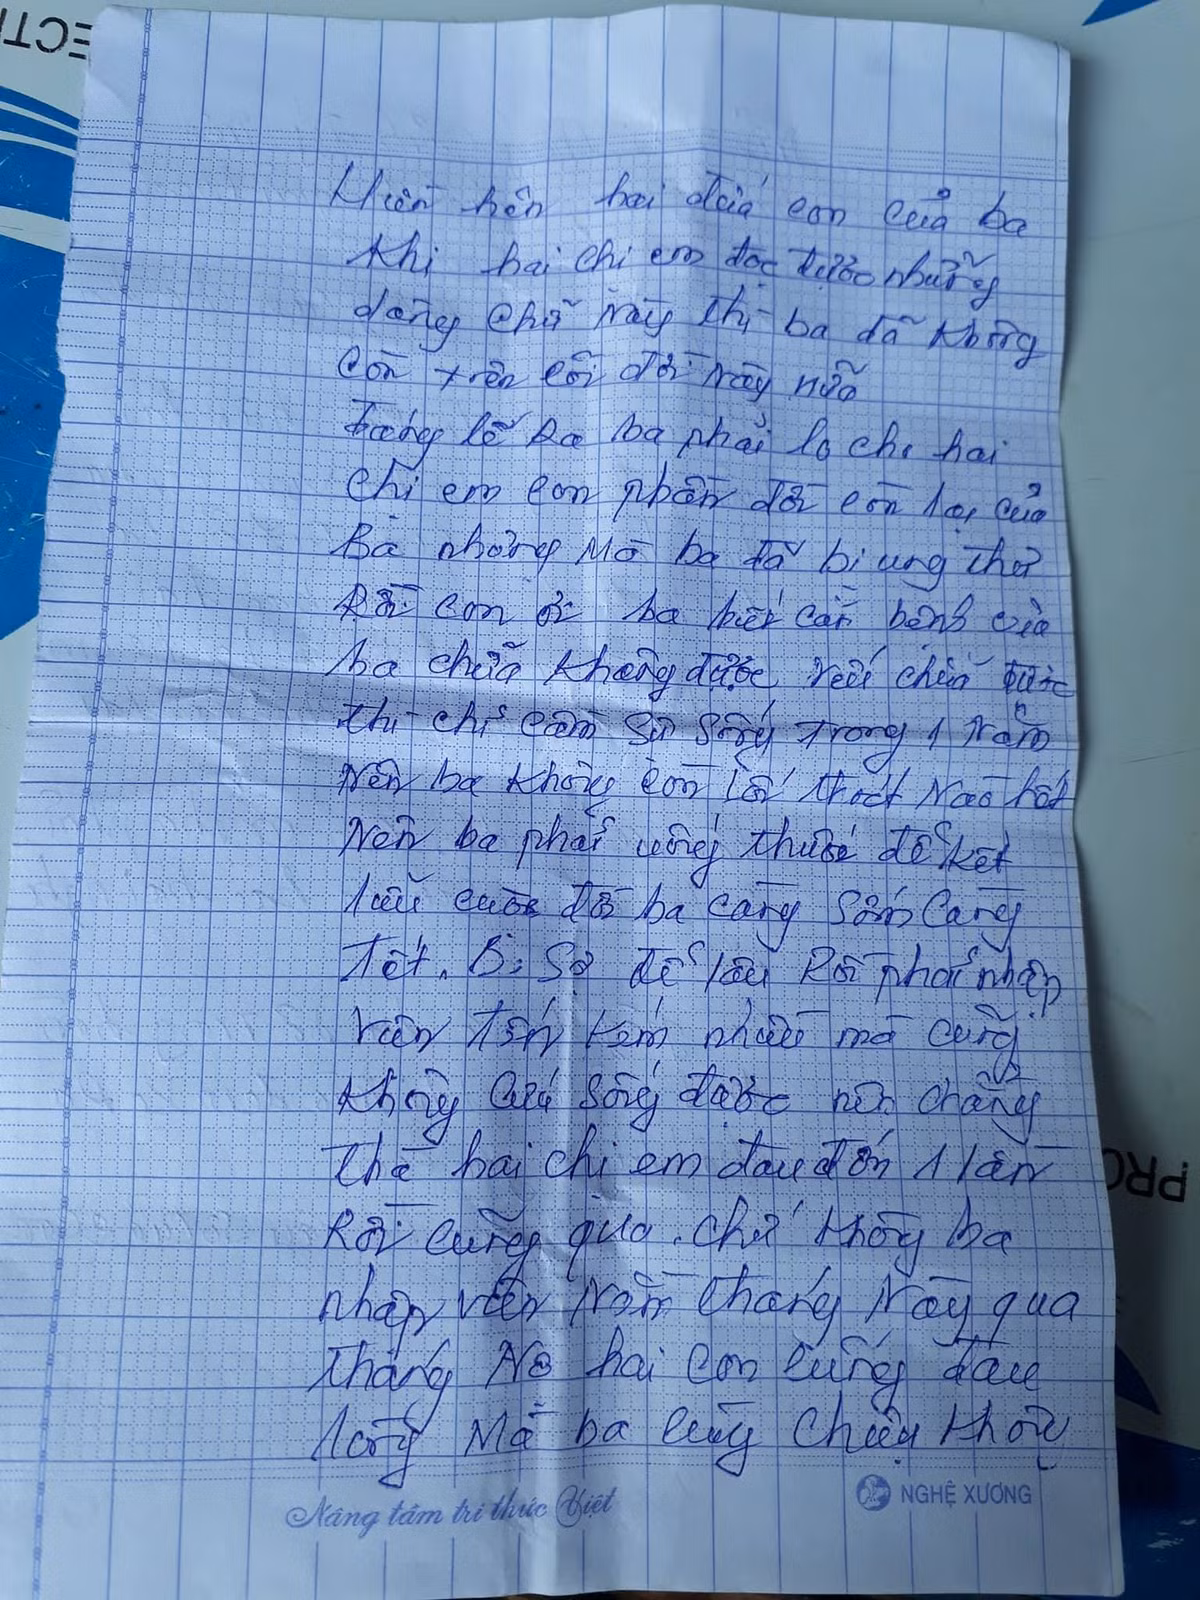 hai đứa con của ba
Khi hai chị em đọc được những
dòng chữ này thì ba đã không
còn trên cõi đời này nữa
Đáng lẽ ra ba phải lo cho hai
chị em con phần đời còn lại của
Ba nhưng mà ba đã bị ung thư
Rồi con ơi ba biết căn bệnh của
ba chữa không được nếu chữa được
thì chỉ cầm sự sống trong 1 năm
Nên ba không còn lối thoát nào hết
Nên ba phải uống thuốc để kết
liễu cuộc đời ba càng sớm càng
Tốt. Bị Sợ để lâu Rồi phải nhập
viện tốn kém nhiều mà cũng
không cứu sống được nên chẳng
thà hai chị em đau đớn 1 lần
Rồi cũng qua. chứ không ba
nhập viện nằm tháng này qua
tháng nọ hai con cũng đau
lòng mà ba cũng chịu không
Nâng tầm tri thức Việt
NGHỆ XƯƠNG
ECT
PRO